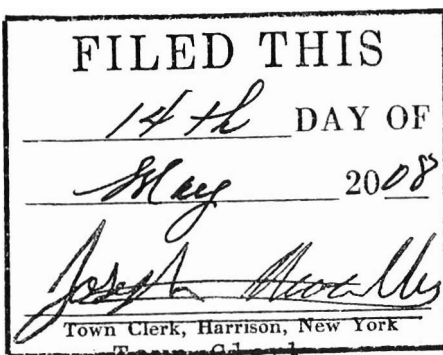 FILED THIS
14th DAY OF
May 2008
Joseph
Town Clerk, Harrison, New York